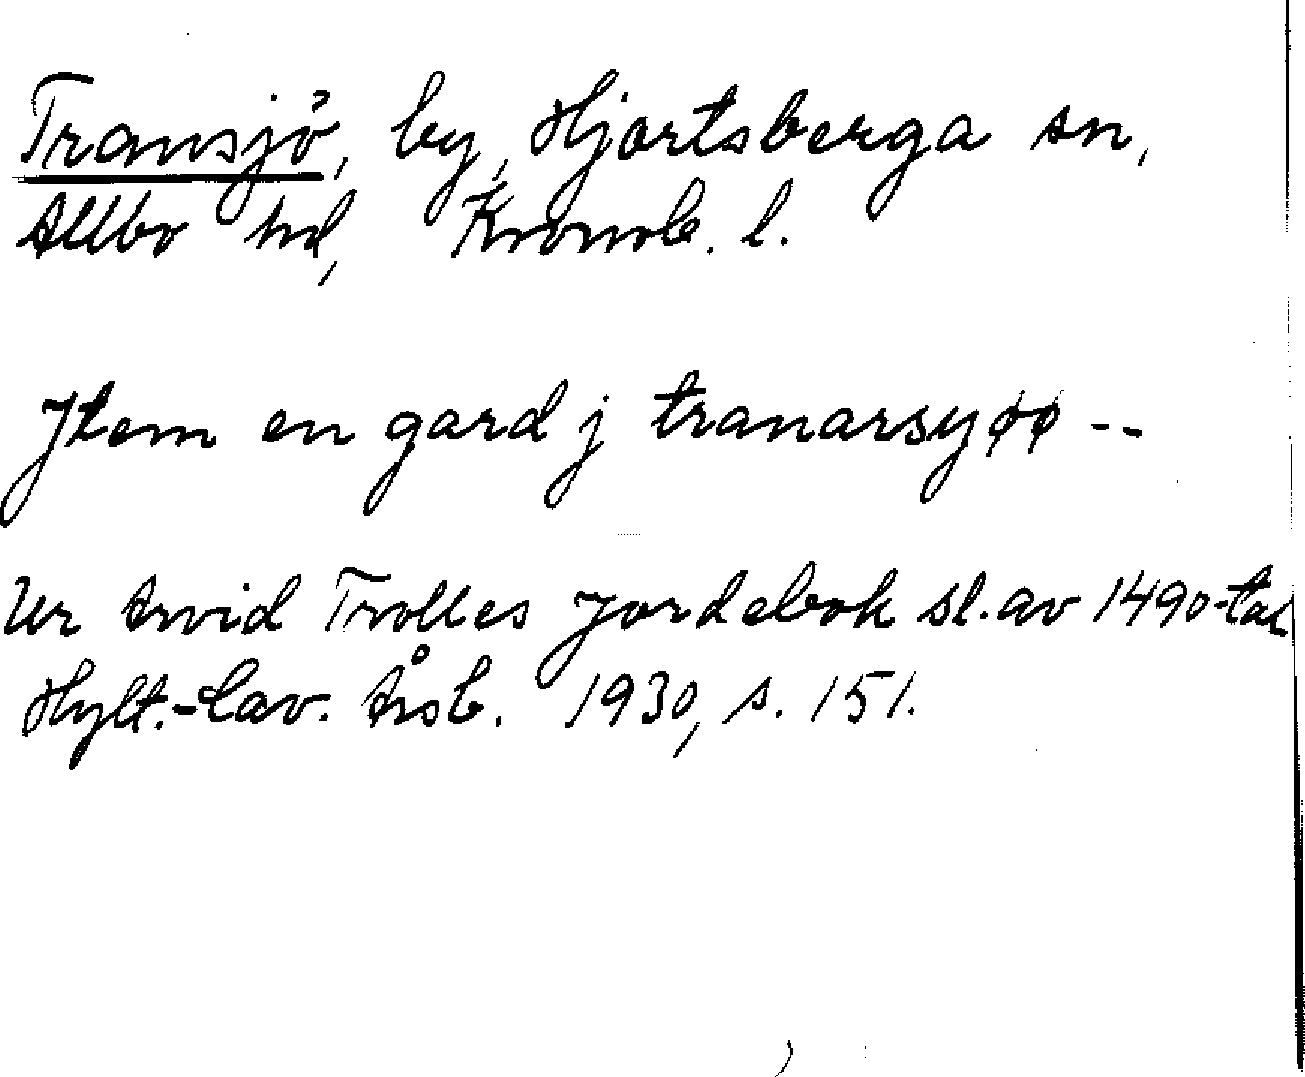 Transjö, by, Hjortsberga sn,
Allbo hd, Kronob. l.
Jtem en gard j tranarsyøø --
Ur Arvid Trolles jordebok sl. av 1490-tal
Hylt.-Cav. Årsb. 1930, s. 151.